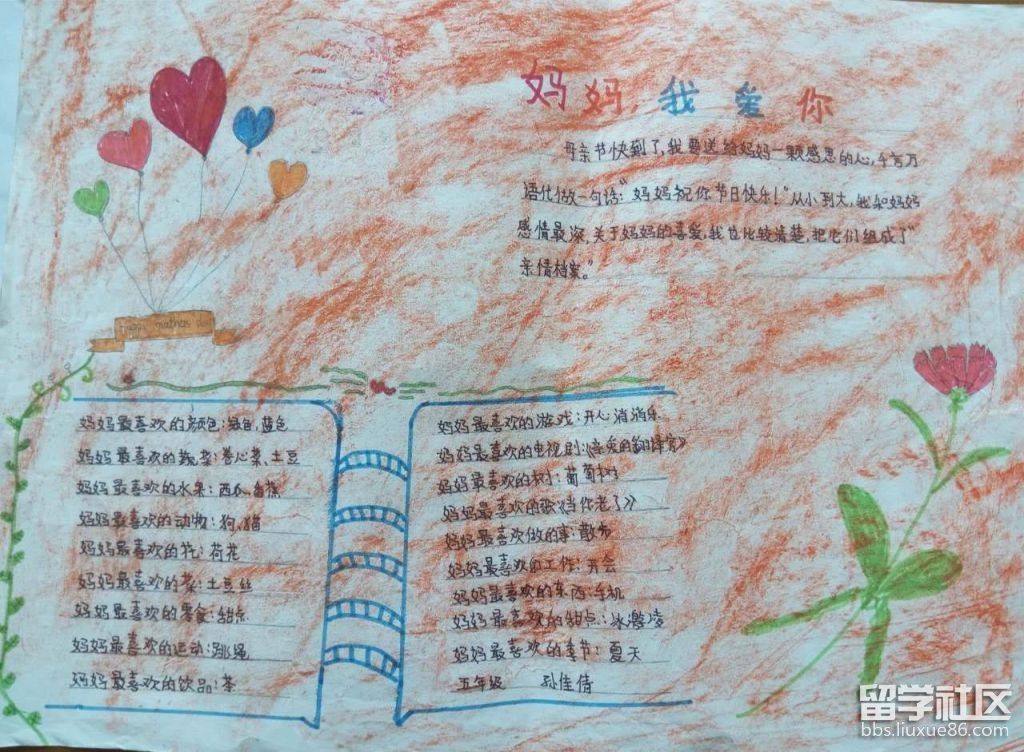 妈妈,我爱你
母亲节快到了,我要送给妈妈一颗感恩的心,千言万
语化做一句话:"妈妈祝你节日快乐!"从小到大,我和妈妈
感情最深,关于妈妈的喜爱,我也比较清楚,把它们组成了"
亲情档案。"
妈妈最喜欢的颜色:绿色,蓝色
妈妈最喜欢的蔬菜:卷心菜、土豆
妈妈最喜欢的水果:西瓜、香蕉
妈妈最喜欢的动物:狗、猫
妈妈最喜欢的花:荷花
妈妈最喜欢的菜:土豆丝
妈妈最喜欢的零食:甜点
妈妈最喜欢的运动:跳绳
妈妈最喜欢的饮品:茶
妈妈最喜欢的游戏:开心消消乐
妈妈最喜欢的电视剧:《亲爱的翻译官》
妈妈最喜欢的树:葡萄树
妈妈最喜欢的歌《当你老了》
妈妈最喜欢做的事:散步
妈妈最喜欢的工作:开会
妈妈最喜欢的东西:手机
妈妈最喜欢的甜点:冰激凌
妈妈最喜欢的季节:夏天
五年级 孙佳倩
留学社区
bbs.liuxue86.com